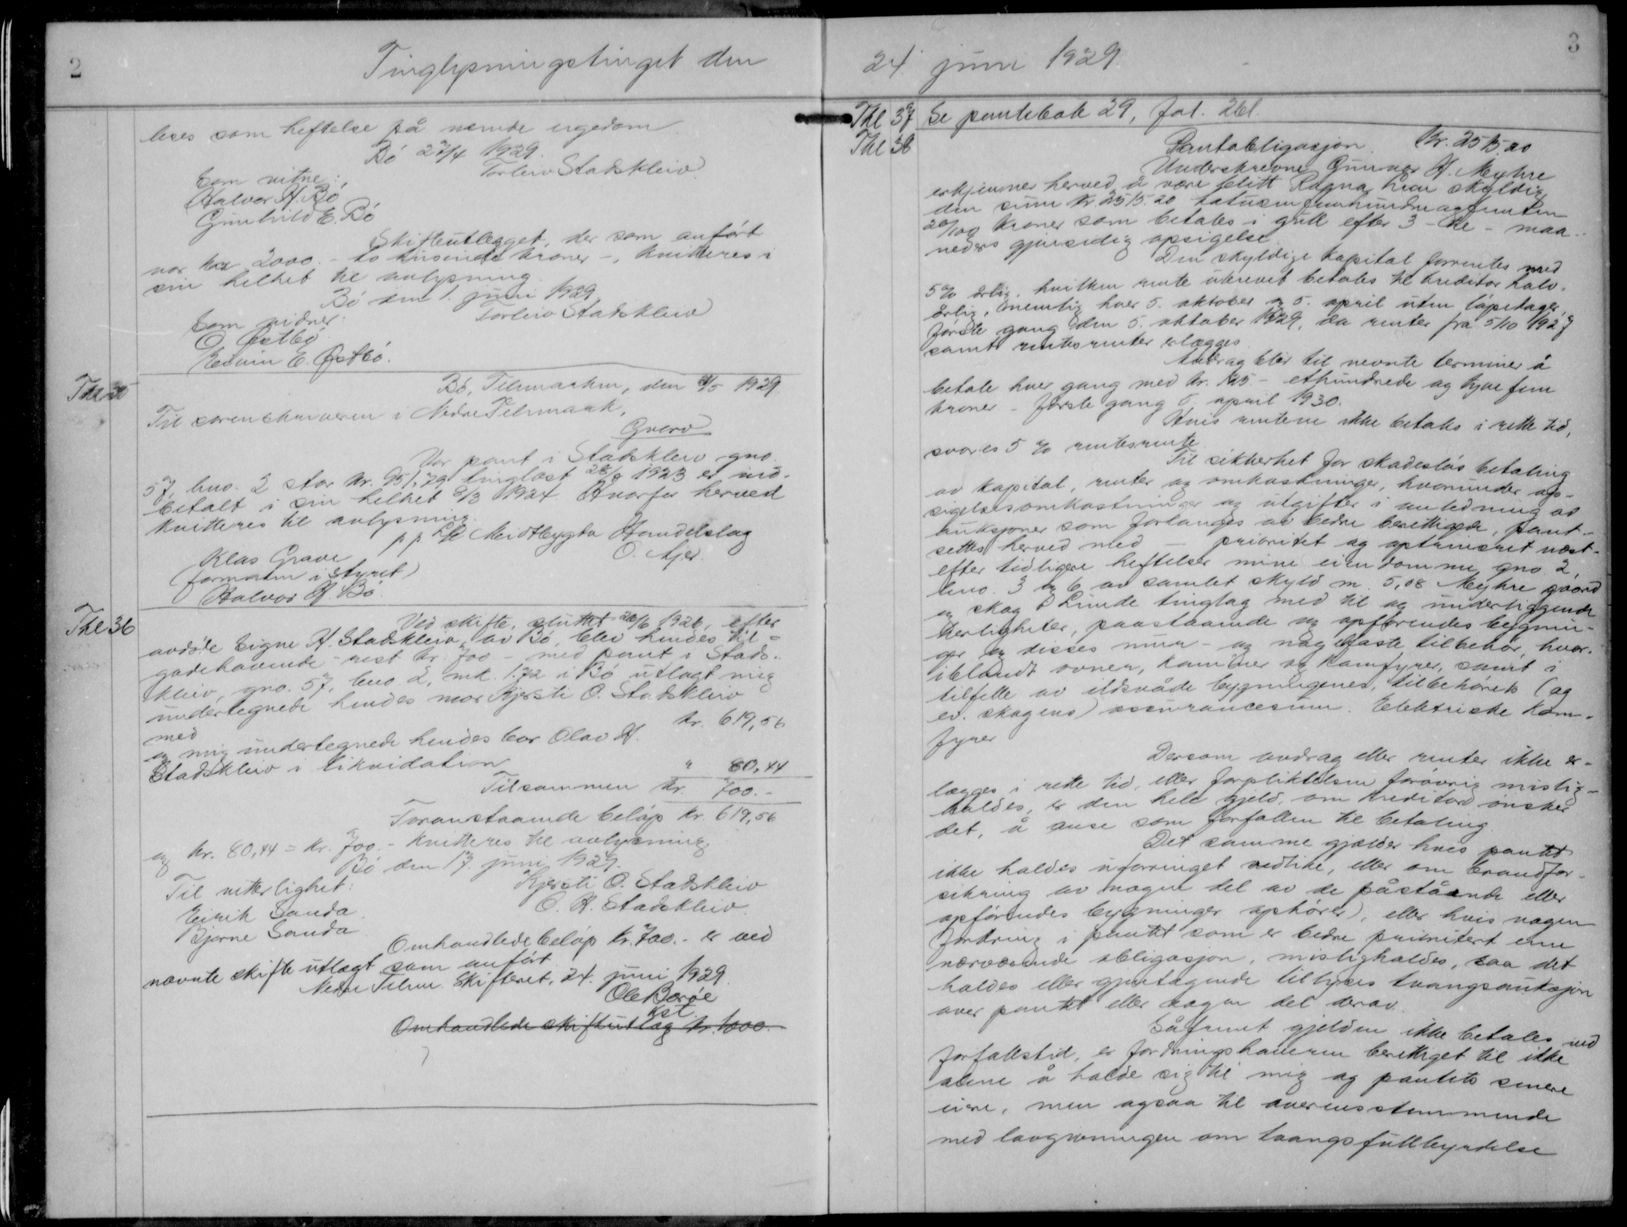 2
Tinglysningstinget den
leses som heftelse på nemde eigedom
Bö 27/4 1929
Som vitne: Torleiv Stadskleiv
Halvor H. Bö
Gunhild E. Bö
Skifteutlegget, der som anfört
var kr. 2000.- to tusende kroner -, kvitteres i
sin helhet til avlysning
Bö den 1. juni 1929
Som vidner: Torleiv Stadskleiv
O. Östbö
Edvin E. Östbö.
Thl 35
Bö, Telemarken, den /5 1929
Til sorenskriveren i Nedre Telemark,
Gvarv
Vor pant i Stadskleiv gno.
57, bno. 2 stor kr. 951,79 tinglæst 28/8 1923 er ind-
betalt i sin helhet 8/3 1924 Hvorfor herved
kvitteres til avlysning.
pp Handelslag
Klas Grave O.
formann i styret)
Halvor H. Bö
Thl 36
Ved skifte, sluttet 26/6 1926, efter
avdöde Signe H. Stadskleiv, av Bö, blev hendes til-
godehavende - rest kr. 700 - med pant i Stads-
kleiv, gno. 57, bno. 2, mk. 1.72 i Bö utlagt mig
undertegnede hendes mor Kjersti O. Stadskleiv
med kr. 619,56
og mig undertegnede hendes bror Olav H.
Stadskleiv i likvidation " 80,44
Tilsammen kr. 700.-
Foranstaaende belöp kr. 619,56
og kr. 80,44 = kr. 700.- kvitteres til avlysning.
Bö den 17 juni 1929.
Til vitterlighet: Kjersti O. Stadskleiv
Eirik Sanda O. H. Stadskleiv.
Bjarne Sanda
Omhandlede belöp kr. 700.- er ved
nævnte skifte utlagt som anfört.
Nedre Telem. Skifteret, 24. juni 1929.
Ole Borge
kst.
Omhandlede skifteutlæg kr. 1000.-
24 juni 1929
3
Thl 37 Se pantebok 29, fol. 261.
Thl 38
Pantobligasjon Kr. 2515.20
Underskrevne Gunnar H. Myhre
erkjenner herved å være blitt Ragna Lien skyldig
den sum kr 2515.20 totusen femhundre og femten
20/100 kroner som betales i gull efter 3 - tre - maa-
neders gjensidig opsigelse.
Den skyldige kapital forrentes med
5 % årlig, hvilken rente ukrevet betales til kreditor halv-
årlig, nemlig hver 5. oktober og 5. april uten löpedager,
förste gang den 5. oktober 1929, da renter fra 5/10 1927
samt rentesrenter erlægges.
Avdrag blir til nevnte terminer å
betale hver gang med kr. 125 - ethundrede og tyve fem
kroner - förste gang 5. april 1930.
Hvis rentene ikke betales i rette tid,
svares 5 % rentesrente.
Til sikkerhet for skadeslös betaling
av kapital, renter og omkostninger, hvorunder op-
sigelsesomkostninger og utgifter i anledning av
auksjoner som forlanges av bedre berettigede, pant-
settes herved med - prioritet og optrinsret næst-
efter tidligere heftelser mine eiendomme, gno. 2,
bno. 3 og 6 av samlet skyld m. 5,08 Myhre gaard
og skog i Lunde tinglag med til og underliggende
herligheter, paastaaende og opförendes bygnin-
ger og disses mur- og naglfaste tilbehör, hvor-
iblandt ovner, kaminer og komfyrer, samt i
tilfelle av ildsvåde bygningenes, tilbehörets (og
ev. skogens) assurancesum. Elektriske kom-
fyrer
Dersom avdrag eller renter ikke er-
lægges i rette tid, eller forpliktelsen forövrig mislig-
holdes, er den hele gjeld, om kreditor önsker
det, å anse som forfallen til betaling
Det samme gjælder hvis pantet
ikke holdes uforringet vedlike, eller om brandfor-
sikring av nogen del av de påstående eller
opförendes bygninger ophörer), eller hvis nogen
fordring i pantet som er bedre prioritert enn
nærværende obligasjon, misligholdes, saa det
holdes eller gjentagende tillyses tvangsauksjon
over pantet eller nogen del derav.
Såfremt gjelden ikke betales ved
forfallstid, er fordringshaveren berettiget til ikke
alene å holde sig til mig og pantets senere
eiere, men ogsaa til overensstemmende
med lovgivningen om tvangsfullbyrdelse